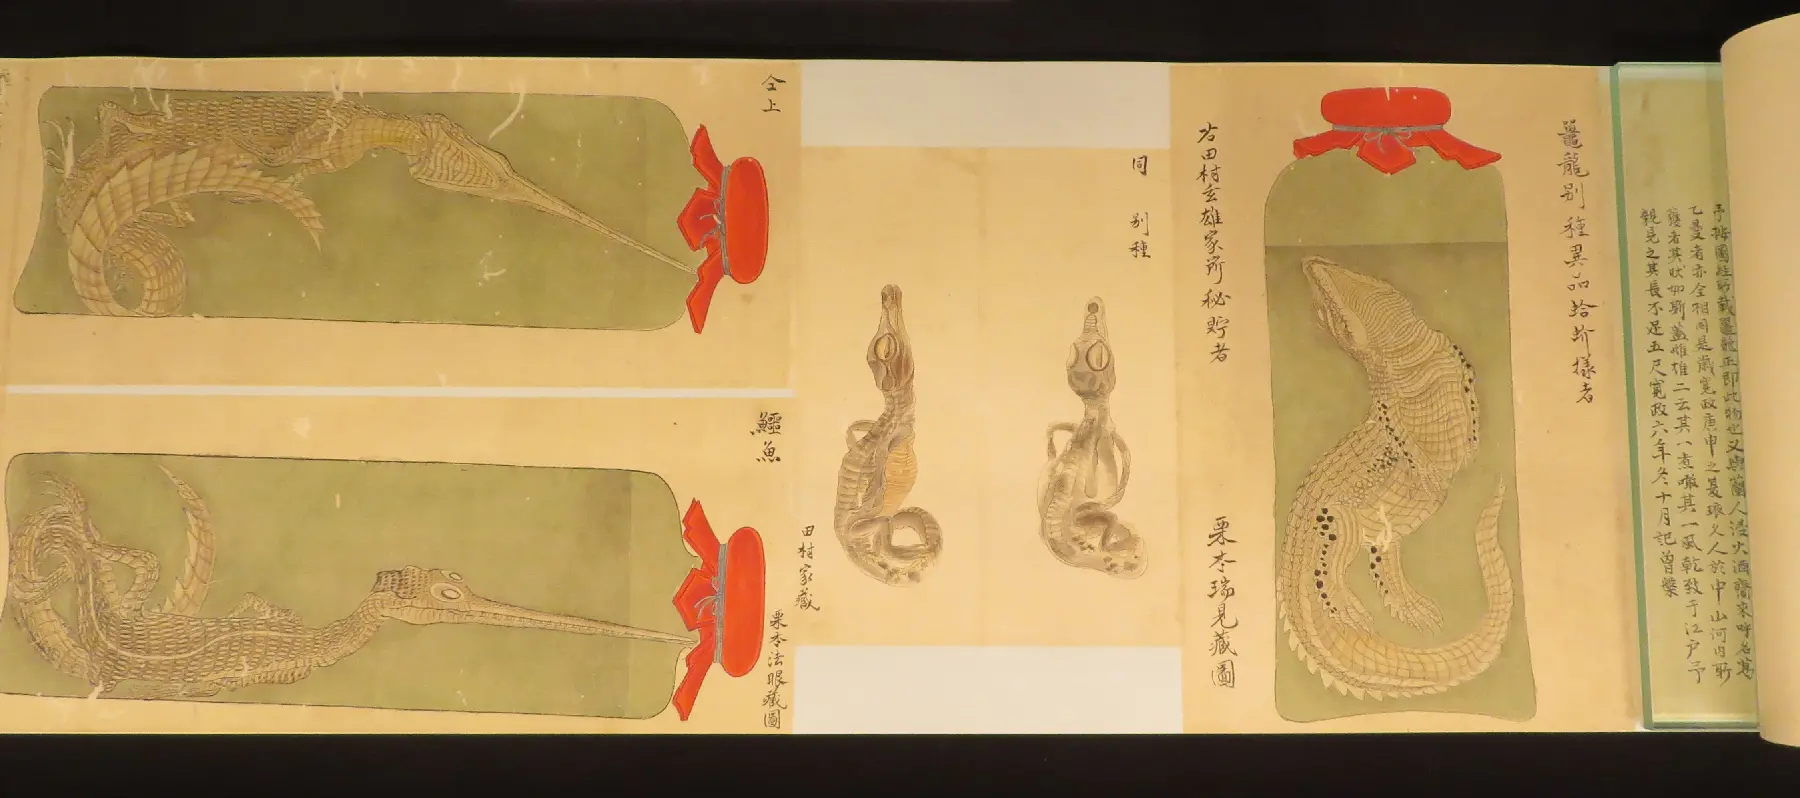 予按圖經所載鼉龍正即此物也又與蘭人浸火酒齎来呼名葛
乙曼者亦全相同是歳寛政庚申之夏琅乂人於中山河内所
獲者其状如斯蓋雌雄二云其一煮噉其一風乾致于江戸予
親見之其長不足五尺寛政六年冬十月記曽槃
鼉龍别種異品蛤蚧様者
右田村玄雄家所秘貯者
栗本瑞見藏圖
同 别種
田村家藏
仝上
鱷魚
栗本法眼藏圖